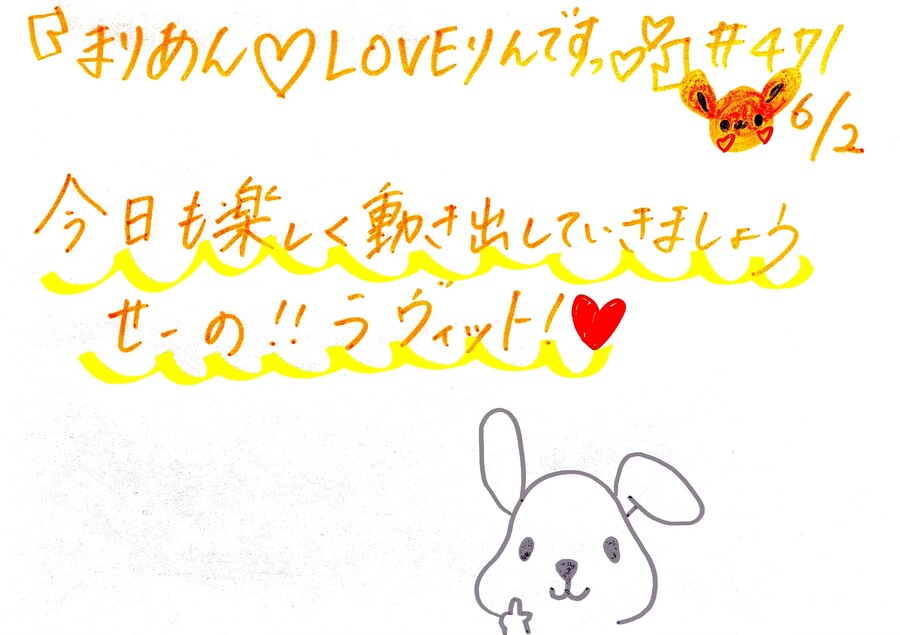 『まりあん♡LOVEりんですっ♡♡♡』#471
6/2
今日も楽しく動き出していきましょう
せーの!!ラヴィット!♥